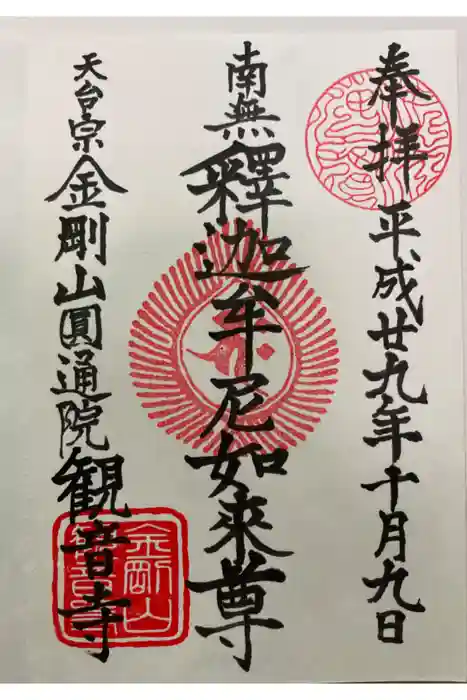 奉拝 平成廿九年十月九日
南無釋迦牟尼如來尊
天台宗金剛山圓通院観音寺
金剛山
観音寺